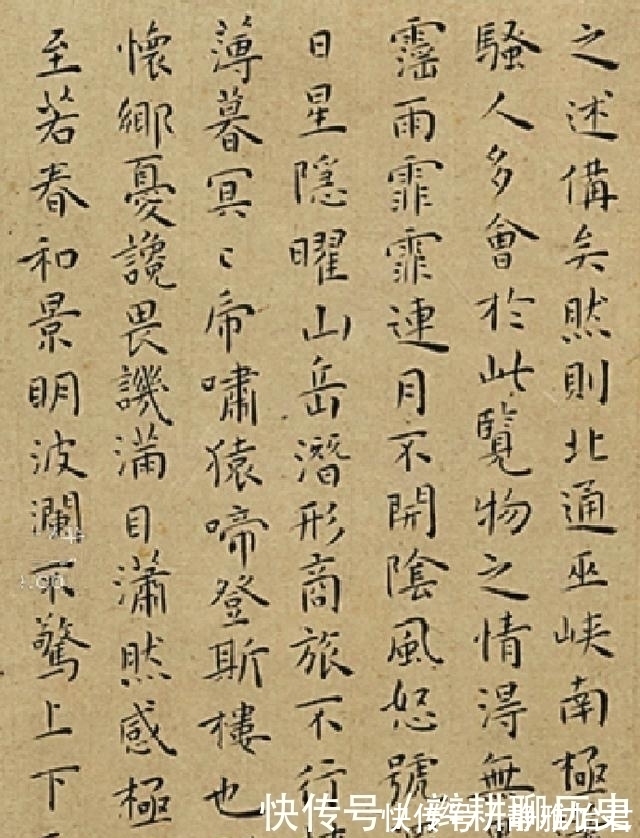 之述備矣然則北通巫峽南極
騷人多會於此覽物之情得無
霪雨霏霏連月不開陰風怒號
日星隱曜山岳潛形商旅不行
薄暮冥〻帝嘯猿啼登斯樓也
懷鄉憂讒畏譏滿目瀟然感極
至若春和景明波瀾不驚上下
快传号 耕聊历史
快传号